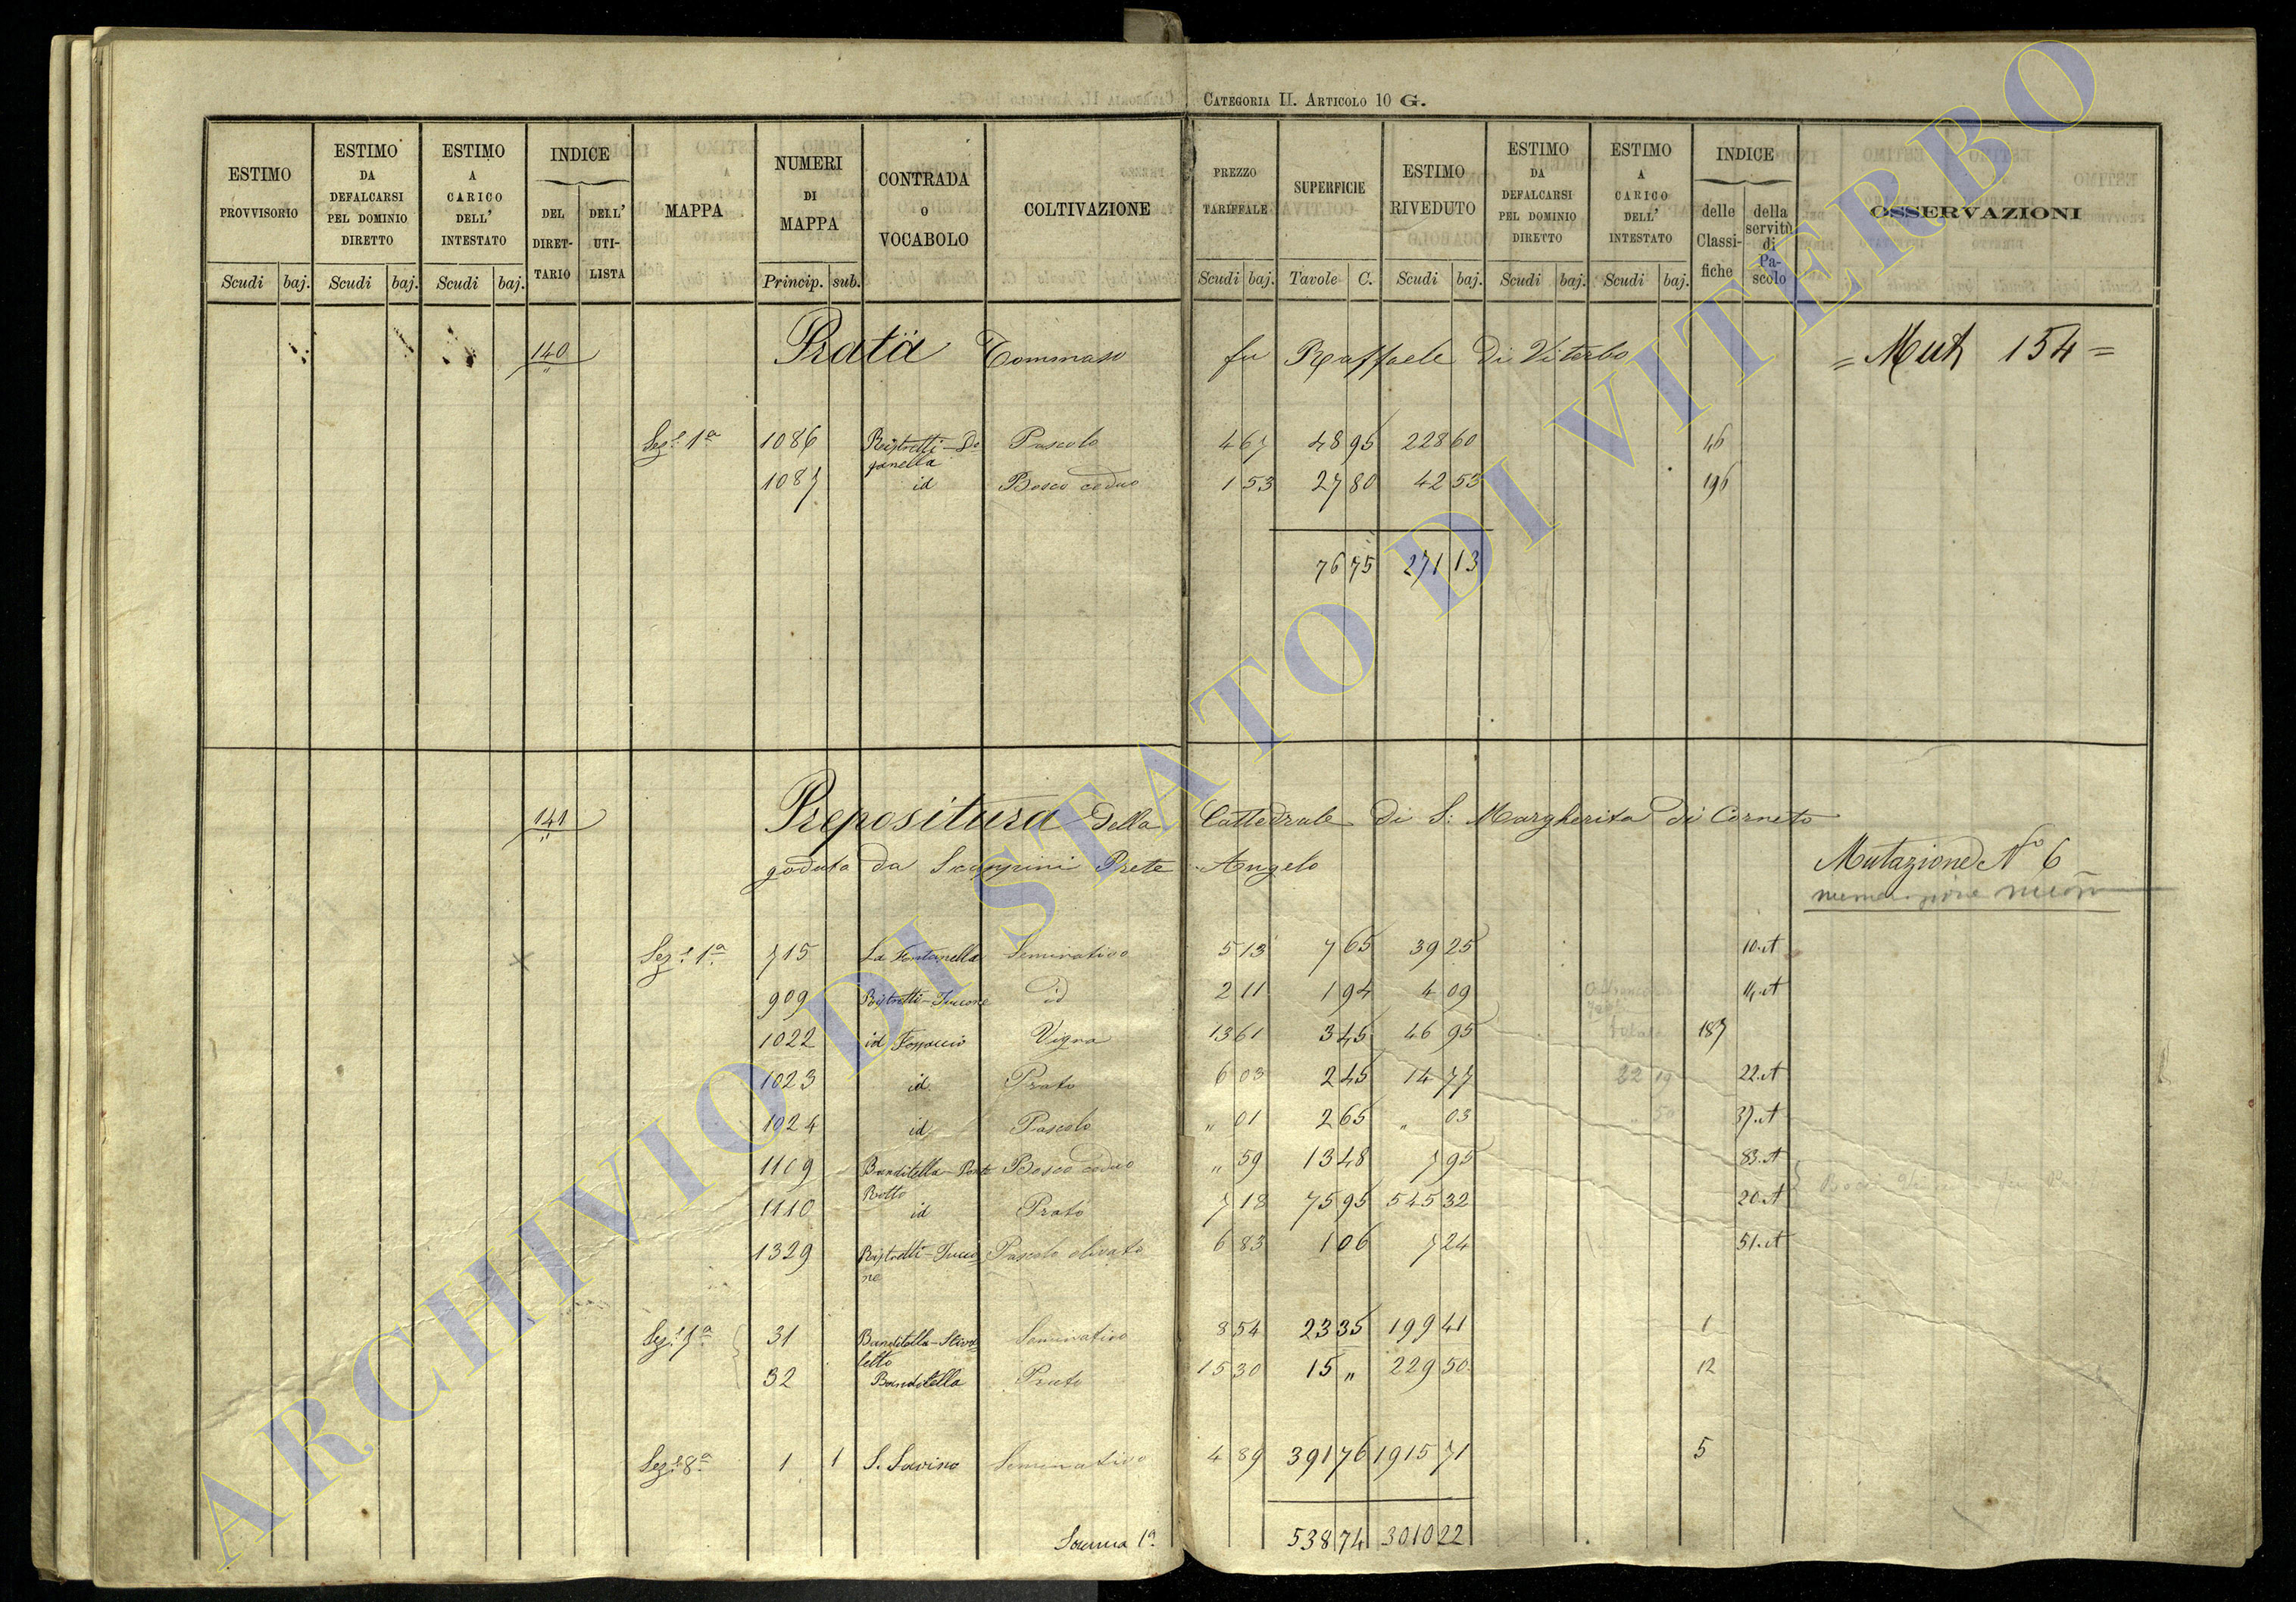 CATEGORIA II. ARTICOLO 10 G.
ESTIMO PROVVISORIO
ESTIMO DA DEFALCARSI PEL DOMINIO DIRETTO
ESTIMO A CARICO DELL' INTESTATO
INDICE
DEL DIRET-TARIO
DELL' UTI-LISTA
MAPPA
NUMERI DI MAPPA
CONTRADA O VOCABOLO
COLTIVAZIONE
PREZZO TARIFFALE
SUPERFICIE
ESTIMO RIVEDUTO
ESTIMO DA DEFALCARSI PEL DOMINIO DIRETTO
ESTIMO A CARICO DELL' INTESTATO
INDICE
delle Classi-fiche
della servitù di Pa-scolo
OSSERVAZIONI
Scudi baj. Scudi baj. Scudi baj. Princip. sub. Scudi baj. Tavole C. Scudi baj. Scudi baj. Scudi baj.
140 Prata Tommaso fu Raffaele di Viterbo = Mut 154 =
Sez.e 1a 1086 Ristretti - Do Pascolo 4 67 48 95 228 60 46
ganella
1087 id Bosco ceduo 1 53 27 80 42 53 196
76 75 271 13
141 Prepositura della Cattedrale di S: Margherita di Corneto
goduta da Scappini Prete Angelo
Mutazione No 6
Sez.e 1a 715 La Fontanella Seminativo 5 13 7 65 39 25 10.A
909 Ristretti - Tuccone id 2 11 1 94 4 09 11.A
1022 id Fossaccio Vigna 13 61 3 45 46 95 187
1023 id Prato 6 03 2 45 14 77 22.A
1024 id Pascolo " 01 2 65 " 03 37.A
1109 Banditella - Ponte Bosco ceduo " 59 13 48 7 95 83.A
Rotto
1110 id Prato 7 18 75 95 545 32 20.A
1329 Ristretti - Tucco Pascolo olivato 6 83 1 06 7 24 51.A
ne
Sez.e 7a 31 Banditella - Seminativo 8 54 23 35 199 41 1
letto
32 Banditella Prato 15 30 15 " 229 50 12
Sez.e 8a 1 1 S. Savino Seminativo 4 89 391 76 1915 71 5
Somma 1a 538 74 3010 22
ARCHIVIO DI STATO DI VITERBO